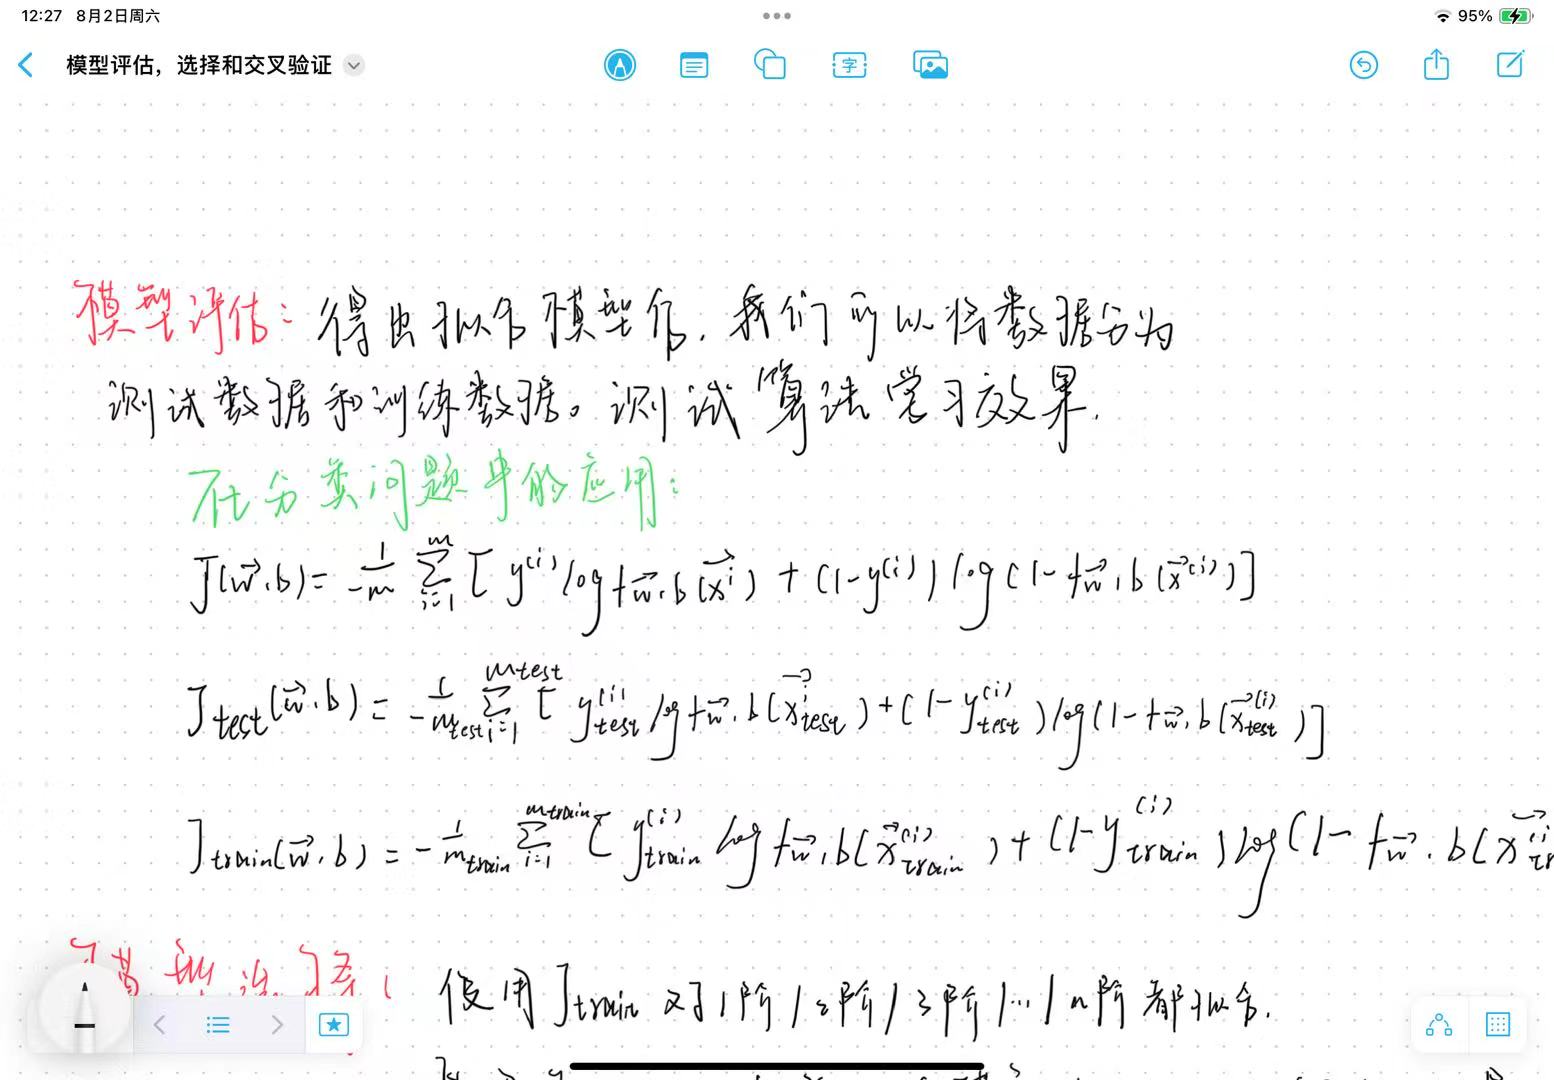 12:27 8月2日周六
95%
模型评估，选择和交叉验证
字
模型评估：得出拟合模型后，我们可以将数据分为
测试数据和训练数据。测试算法学习效果.
在分类问题中的应用：
J(w⃗,b) = -1/m ∑_{i=1}^{m} [ y^{(i)} log f_{w⃗,b}(x⃗^{i}) + (1-y^{(i)}) log(1-f_{w⃗,b}(x⃗^{(i)})]
J_{test}(w⃗,b) = -1/m_{test} ∑_{i=1}^{m_{test}} [ y_{test}^{(i)} log f_{w⃗,b}(x⃗_{test}^{i}) + (1-y_{test}^{(i)}) log(1-f_{w⃗,b}(x⃗_{test}^{(i)})]
J_{train}(w⃗,b) = -1/m_{train} ∑_{i=1}^{m_{train}} [ y_{train}^{(i)} log f_{w⃗,b}(x⃗_{train}^{(i)}) + (1-y_{train}^{(i)}) log(1-f_{w⃗,b}(x⃗
模型选择： 使用J_{train} 对1阶/2阶/3阶/…/n阶都拟合.